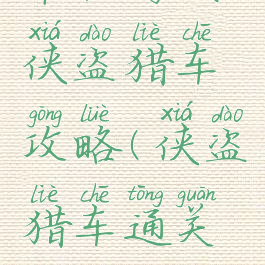 xiá dào liè chē
侠盗猎车
gōng lüè xiá dào
攻略(侠盗
liè chē tōng guān
猎车通关